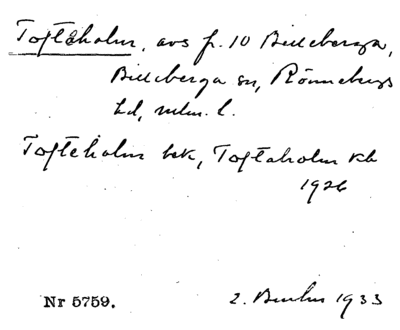 Toftaholm, avs fr. 10 Billeberga,
Billeberga sn, Rönnebergs
hd, mlm. l.
Toftaholm bek, Toftaholm kb
1926
Nr 5759. 2. 1933